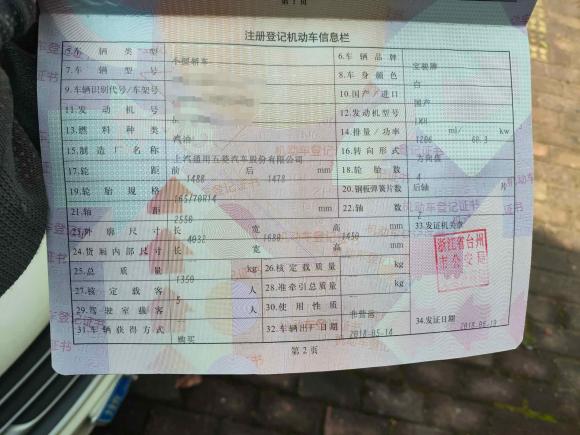 第 1 页
注册登记机动车信息栏
5.车辆类型 小型轿车 6.车辆品牌 宝骏牌
7.车辆型号 8.车身颜色 白
9.车辆识别代号/车架号 10.国产/进口 国产
11.发动机号 12.发动机型号
13.燃料种类 汽油 14.排量/功率 1206 ml/ 60.3 kw
15.制造厂名称 上汽通用五菱汽车股份有限公司 16.转向形式 方向盘
17.轮距 前 1488 后 1478 mm 18.轮胎数 4
19.轮胎规格 165/70R14 20.钢板弹簧片数 后轴 片
21.轴距 2550 mm 22.轴数 2
23.外廓尺寸 长 4032 宽 1680 高 1450 mm 33.发证机关章
24.货厢内部尺寸 长 宽 高 mm
浙江省台州市公安局
25.总质量 1350 kg 26.核定载质量 kg
27.核定载客 5 人 28.准牵引总质量 kg
29.驾驶室载客 人 30.使用性质 非营运
31.车辆获得方式 购买 32.车辆出厂日期 2018-05-14 34.发证日期
第 2 页